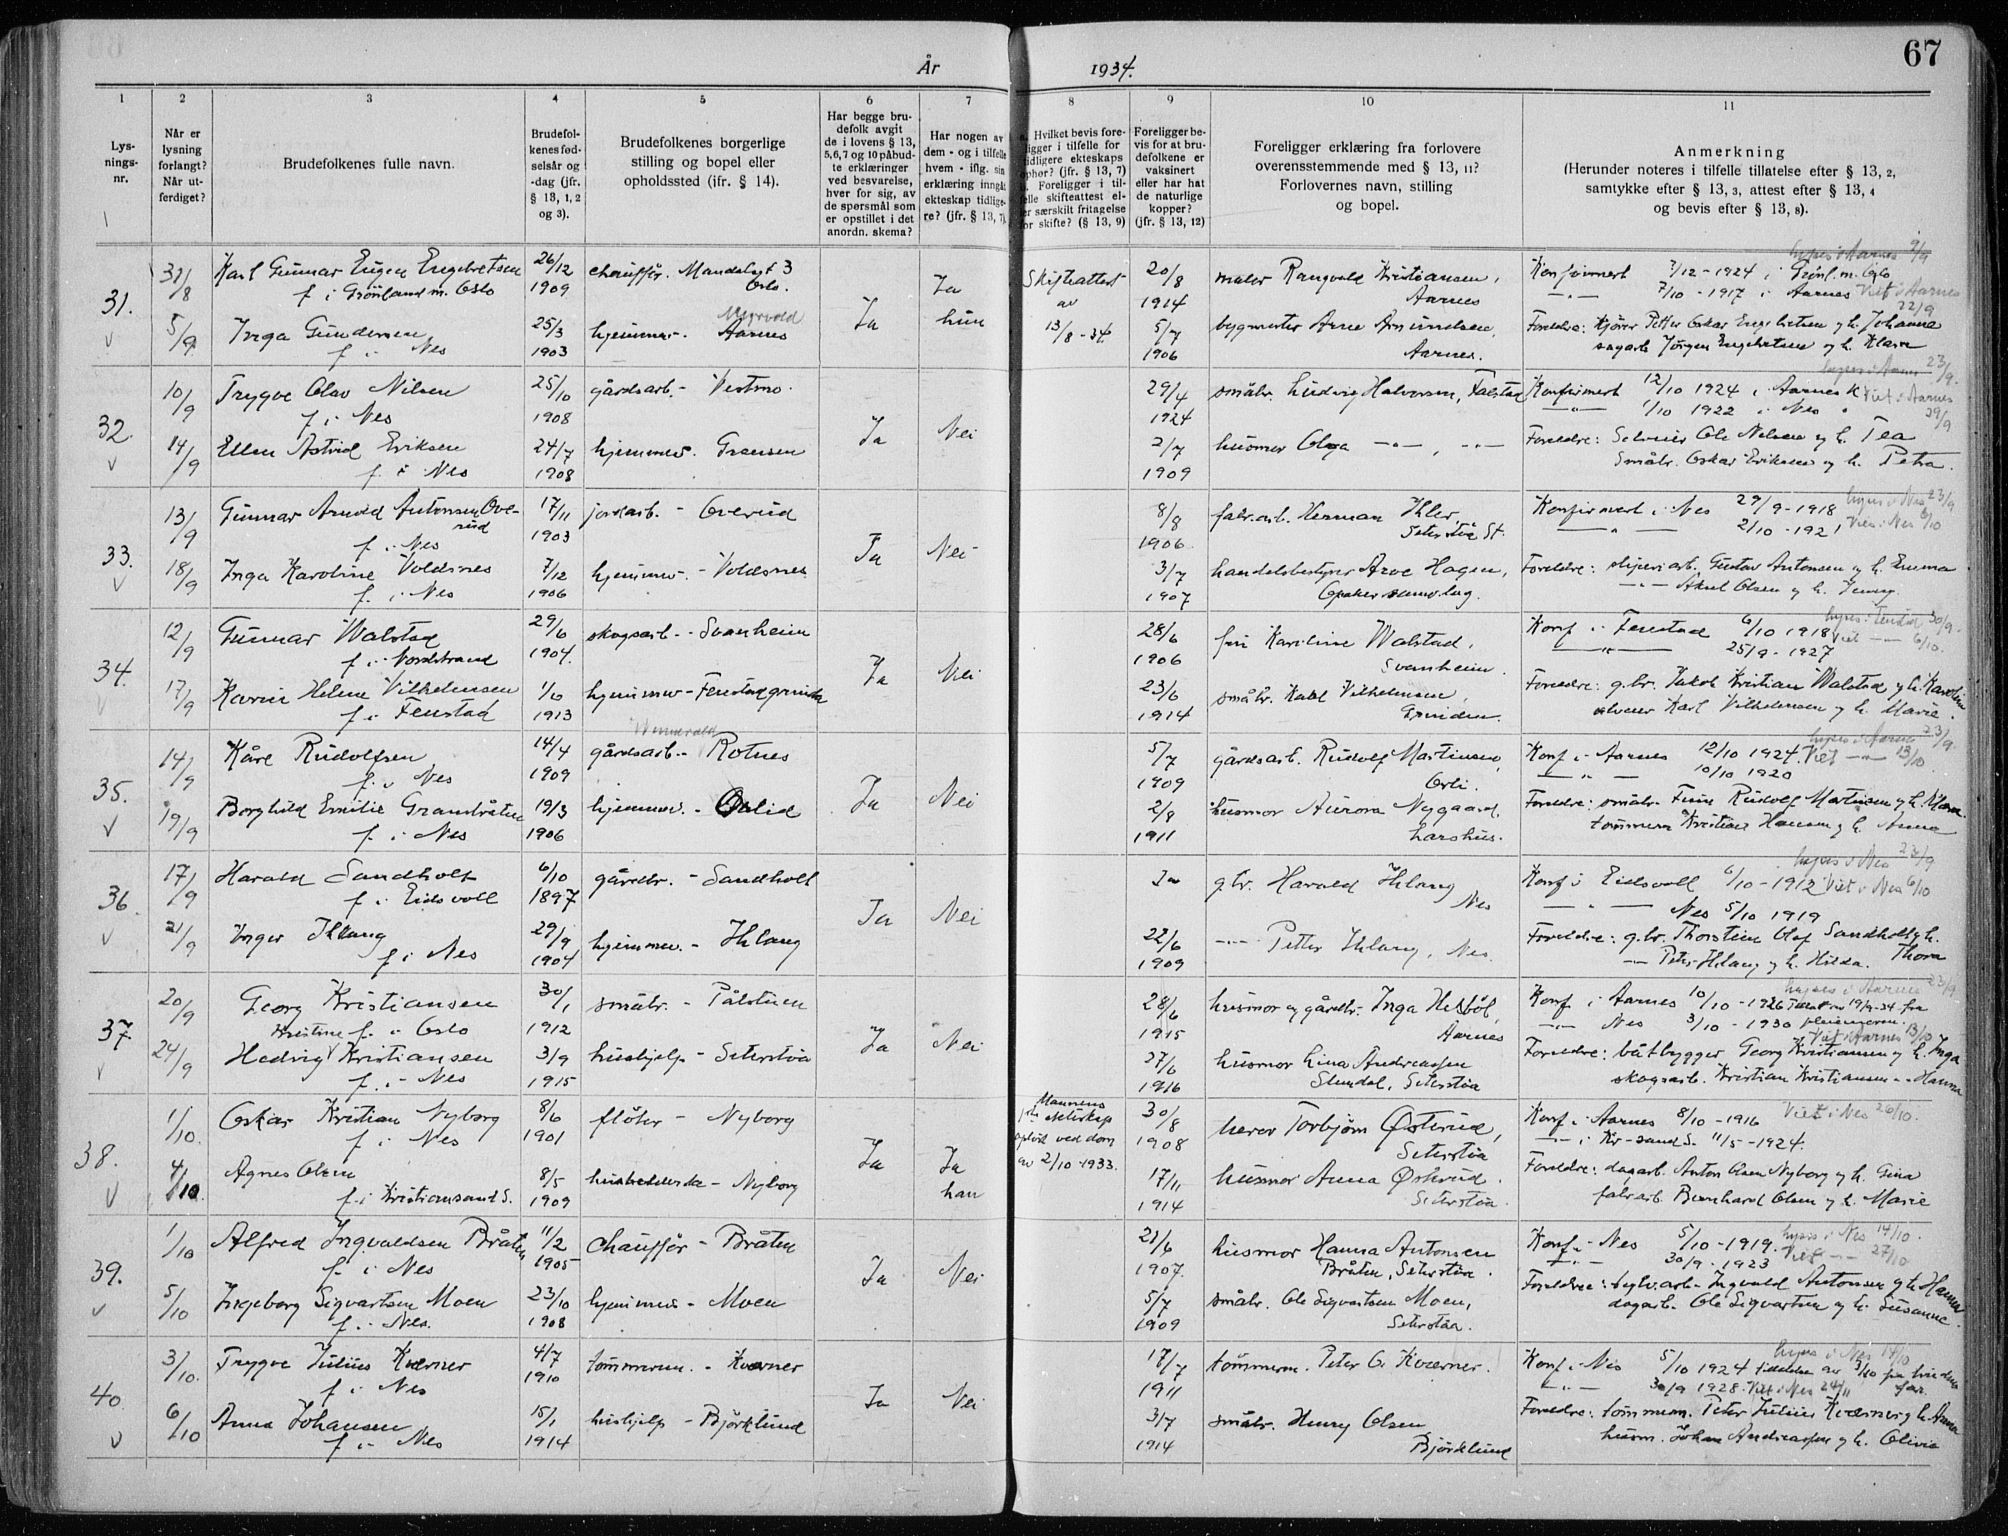 67
År
1934.
1 2 3 4 5 6 7 8 9 10 11
Lys-
nings-
nr.
Når er
lysning
forlangt?
Når ut-
ferdiget?
Brudefolkenes fulle navn.
Brudefol-
kenes fød-
selsår og
-dag (jfr.
§ 13, 1, 2
og 3).
Brudefolkenes borgerlige
stilling og bopel eller
opholdssted (jfr. § 14).
Har begge bru-
defolk avgit
de i lovens § 13,
5,6,7 og 10 påbud-
te erklæringer
ved besvarelse,
hver for sig, av
de spørsmål som
er opstillet i det
anordn. skema?
Har nogen av
dem - og i tilfelle
hvem - iflg. sin
erklæring inngåt
ekteskap tidlige-
re? (jfr. § 13, 7).
Hvilket bevis fore-
ligger i tilfelle for
tidligere ekteskaps
ophør? (jfr. § 13, 7)
Foreligger i til-
felle skifteattest el-
ler særskilt fritagelse
for skifte? (§ 13, 9)
Foreligger be-
vis for at bru-
defolkene er
vaksinert
eller har hat
de naturlige
kopper?
(jfr. § 13, 12)
Foreligger erklæring fra forlovere
overensstemmende med § 13, 11?
Forlovernes navn, stilling
og bopel.
Anmerkning
(Herunder noteres i tilfelle tillatelse efter § 13, 2,
samtykke efter § 13, 3, attest efter § 13, 4
og bevis efter § 13, 8).
31.
31/8 Karl Gunnar Eugen Engebretsen 26/12 chauffør. Mandalsgt 3
f. i Grønland m. Oslo 1909 Oslo.
5/9 Inga Gundersen 25/3 hjemmev- Aarnes
f. i Nes 1903
Ja Ja hun
Skifteattest av 13/8-34
20/8 1914 maler Rangvald Kristiansen, Aarnes
5/7 1906 bygmester Arne Amundsen, Aarnes.
lyses i Aarnes 9/9
Konfirmert 7/12-1924 i Grønl. m. Oslo
7/10-1917 i Aarnes Viet i Aarnes 22/9
Foreldre: kjører Petter Oskar Engebretsen og h. Johanna
sagarb Jørgen Engebretsen og h. Klara
32.
10/9 Trygve Olav Nilsen 25/10 gårdsarb- Vestmo.
f. i Nes 1908
14/9 Ellen Astrid Eriksen 24/7 hjemmev. Grensen
f. i Nes 1908
Ja Nei
29/4 1924 småbr. Ludvig Halvorsen, Falstad
2/7 1909 husmor Olga -"-, -"-
lyses i Aarnes 23/9.
Konfirmert 12/10 1924 i Aarnes k Viet i Aarnes
1/10 1922 i Nes " 29/9
Foreldre: Selveier Ole Nilsen og h. Tea
Småbr. Oskar Eriksen og h. Petra.
33.
13/9 Gunnar Arnold Antonsen Ove- 17/11 jordarb. - Overud
rud
f. i Nes 1903
18/9 Inga Karoline Voldsnes 7/12 hjemmev. - Voldsnes
f. i Nes 1906
Ja Nei
8/8 1906. fabr.arb. Herman Ihler Seterstøa St.
3/7 1907 handelsbestyrer Arve Hagen,
lyses i Nes 23/9
Konfirmert i Nes 29/9-1918 Viet i Nes 6/10
2/10-1921
Foreldre: sliperiarb. Gustav Antonsen og h. Emma
-"- Aksel Olsen og h. Jenny.
34.
12/9 Gunnar Walstad 29/6 skogsarb - Svanheim
f. i Nordstrand 1904.
17/9 Karin Helene Vilhelmsen 1/6 hjemmev - Fenstadgrinda
f. i Fenstad 1913
Ja Nei
28/6 1906 fru Karoline Walstad, Svanheim.
23/6 1914 småbr. Karl Vilhelmsen, Grinden.
lyses i Fenstad 30/9.
Konf i Fenstad 6/10 1918 Viet -"- 6/10.
25/9-1927
Foreldre: g.br. Jakob Kristian Walstad og h. Karoline
Karl Vilhelmsen og h. Marie.
35.
14/9 Kåre Rudolfsen 14/4 gårdsarb - Rotnes
f. i Nes 1909
19/9 Borghild Emilie Grandråten 19/3 hjemmev. - Orlid
f. i Nes 1906
Ja Nei
5/7 1909 gårdsarb. Rudolf Martinsen, Orli.
2/8 1911 husmor Aurora Nygaard, Larshus.
lyses i Aarnes 23/9.
Konf i Aarnes 12/10 1924. Viet -"- 13/10.
10/10 1920
Foreldre: småbr. Finn Rudolf Martinsen og h. Klara
tømmerm Kristian Hansen og h. Anna
36.
17/9 Harald Sandholt 6/10 gårdbr. - Sandholt
f. i Eidsvoll 1897
21/9 Inger Ihlang 29/9 hjemmev. - Ihlang
f. i Nes 1904
Ja Nei
Ja g.br. Harald Ihlang Nes
22/6 1909 -"- Petter Ihlang, Nes.
lyses i Nes 23/9
Konf i Eidsvoll 6/10-1912 Viet i Nes 6/10
Nes 5/10 1919
Foreldre: g.br. Thorstein Olaf Sandholt og h.
-"- Peter Ihlang og h. Hilda. Thora
37.
20/9 Georg Kristiansen 30/1 småbr. - Pålstuen
f. i Oslo 1912
24/9 Hedvig Kristine Kristiansen 3/9 hushjelp - Seterstøa
f. i Nes 1915
Ja Nei
28/6 1915 husmor og gårdbr. Inga Hesbøl, Aarnes
27/6 1916 husmor Lina Andreassen Stendal, Seterstøa
lyses i Aarnes 23/9
Konf i Aarnes 10/10-1926 19/9-34 fra
-"- Nes 3/10-1930
Viet i Aarnes 13/10
Foreldre: båtbygger Georg Kristiansen og h. Inga
skogsarb. Kristian Kristiansen - Hanna
38.
1/10. Oskar Kristian Nyborg 8/6 fløter - Nyborg
f. i Nes 1901
4/10. Agnes Olsen 8/5 husholderske - Nyborg
f. i Kristiansand S. 1909
Ja Ja han
Mannens ekteskap opløst ved dom av 2/10-1933.
30/8 1908 herr Torbjørn Østerud, Seterstøa
17/11 1914 husmor Anna Østerud. Seterstøa.
Konf. i Aarnes 8/10-1916 Viet i Nes 20/10.
-"- i Kr-sand S. 11/5-1924.
Foreldre: dagarb. Anton Olsen Nyborg og h. Gina
fabr.arb. Bernhard Olsen og h. Marie
39.
1/10 Alfred Ingvaldsen Bråten 11/2 chauffør - Bråten
f. i Nes 1905
5/10 Ingeborg Sigvartsen Moen 23/10 hjemmev - Moen
f. i Nes. 1908
Ja Nei
21/6 1907. husmor Hanna Antonsen Bråten, Seterstøa.
5/7 1909 småbr. Ole Sigvartsen Moen, Seterstøa.
lyses i Nes 14/10.
Konf. i Nes 5/10-1919. Viet -"- 27/10
30/9-1923
Foreldre: Ingvald Antonsen og h. Hanna
dagarb. Ole Sigvartsen og h. Susanne.
40.
3/10. Trygve Julius Kværner 4/7 tømmerm. - Kværner
f. i Nes 1910
6/10 Anna Johansen 15/1 hushjelp - Bjørklund
f. i Nes 1914
Ja Nei
17/7 1911 tømmerm. Peter G. Kværner.
3/7 1914 småbr. Henry Olsen Bjørklund
lyses i Nes 14/10
Konf. i Nes 5/10 1924 tillatelse av 3/10 fra brudens far.
30/9 1928. Viet i Nes 24/11
Foreldre: tømmerm. Peter Julius Kværner og h. Anna
husm. Johan Andreassen og h. Olivia